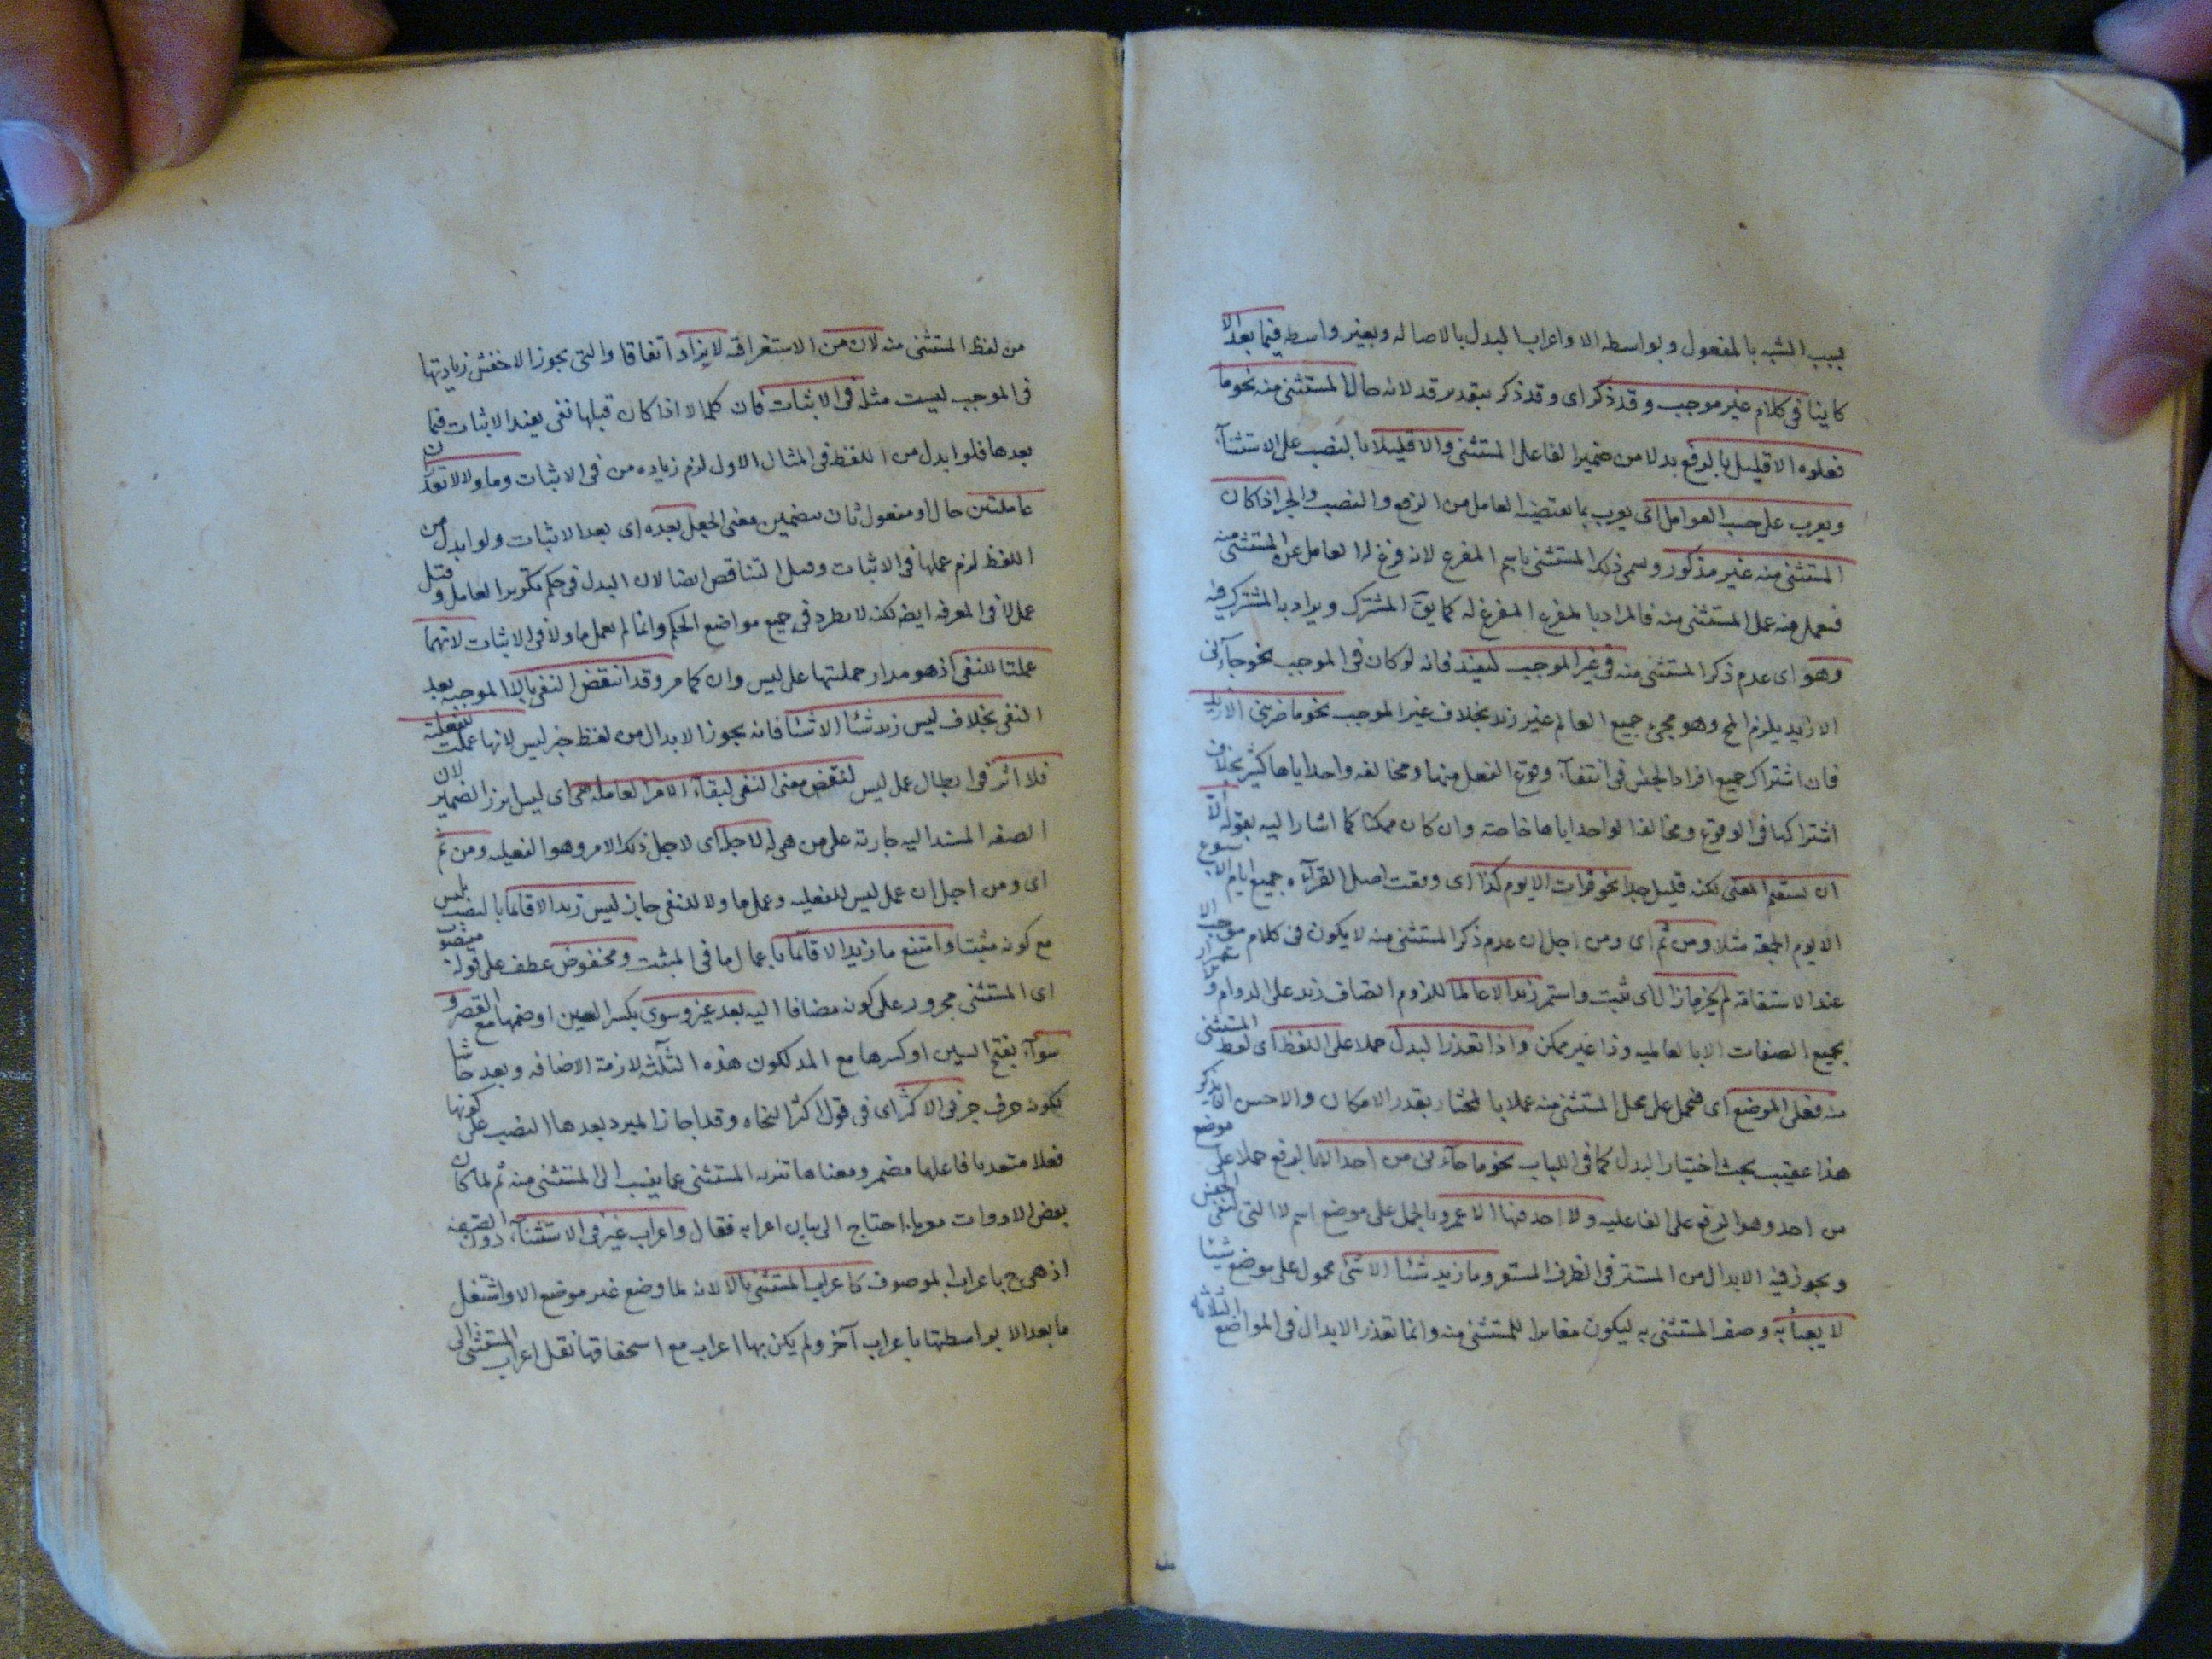 بسبب الشبه بالمفعول وبواسطه الا واعراب البدل بالاصاله وبغير واسطه فيما بعد الا
كاينا فى كلام غير موجب وقد ذكر اى وقد ذكر بتقدير قد لانه حال المستثنى منه نحو ما
فعلوه الا قليل بالرفع بدلا من ضمير الفاعل المستثنى والا قليلا بالنصب على الاستثناء
ويعرب على حسب العوامل اى يعرب بما يقتضيه العامل من الرفع والنصب والجر اذا كان
المستثنى منه غير مذكور وسمى ذلك المستثنى باسم المفرغ لانه فرغ له العامل عن المستثنى منه
فيعمل فيه عمل المستثنى منه فالمراد بالمفرغ المفرغ له كما يق المشترك ويراد به المشترك فيه
وهو اى عدم ذكر المستثنى منه فى غير الموجب ليفيد فانه لو كان فى الموجب نحو جاءنى
الا زيد يلزم المح وهو مجىء جميع العالم غير زيد بخلاف غير الموجب نحو ما ضربنى الا زيد
فان اشتراك جميع افراد الجنس فى انتفاء وقوع الفعل منها ومخالفه واحد اياها كثير بخلاف
اشتراكها فى الوقوع ومخالفه الواحد اياها خاصة وان كان ممكنا كما اشار اليه بقوله الا
ان يستقيم المعنى لكنه قليل جدا نحو قرات الا يوم كذا اى وقعت اصل القراءه جميع ايام الاسبوع
الا يوم الجمعة مثلا ومن ثم اى ومن اجل ان عدم ذكر المستثنى منه لا يكون فى كلام موجب الا
عند الاستقامة لم يجز ما زال اى ثبت واستمر زيد الا عالما للزوم اتصاف زيد على الدوام و
بجميع الصفات الا بالعالميه وذا غير ممكن واذا تعذر البدل حملا على اللفظ اى لفظ المستثنى
منه فعلى الموضع اى فيحمل على محل المستثنى منه عملا بالمختار بقدر الامكان والاحسن ان يذكر
هذا عقيب بحث اختيار البدل كما فى اللباب نحو ما جاءنى من احد الا بالرفع حملا على موضع
من احد وهو الرفع على الفاعليه ولا احد فيها الا عمرو بالحمل على موضع اسم لا التى لنفى الجنس
ويجوز فيه الابدال من المستتر فى الظرف المستقر وما زيد شئا الا شئ محمول على موضع شيئا
لا يعبأ به وصف المستثنى به ليكون مغايرا للمستثنى منه وانما تعذر الابدال فى المواضع الثلاثه
منه
من لفظ المستثنى منه لان من الاستغراقيه لا يزاد اتفاقا والتى يجوز الاخفش زيادتها
فى الموجب ليست مثله فى الاثبات فان كلمة الا اذا كان قبلها نفى يفيد الاثبات فيما
بعدها فلو ابدل من اللفظ فى المثال الاول لزم زياده من فى الاثبات وما ولا لا تقدران
عاملتين حال او مفعول ثان بتضمين معنى الجعل بعده اى بعد الاثبات ولو ابدل من
اللفظ لزم عملها فى الاثبات وقيل التناقض ايضا لان البدل فى حكم تكرير العامل وقيل
عمل لا فى المعرفه ايض لكنه لا يطرد فى جميع مواضع الحكم وانما لم يعمل ما ولا فى الاثبات لانهما
عملتا للنفى اذ هو مدار حملتها على ليس وان كما مر وقد انتقض النفى بالا الموجبه بعد
النفى بخلاف ليس زيد شئا الا شئا فانه يجوز الابدال من لفظ خبر ليس لانها عملت للفعلية
فلا اثر فى ابطال عمل ليس لنقض معنى النفى لبقاء الامر العامله هى اى ليس ابرز الضمير لان
الصفه المسند اليه جارية على من هى له لاجله اى لاجل ذلك الامر وهو الفعليه ومن ثم
اى ومن اجل ان عمل ليس للفعليه وعمل ما ولا للنفى جاز ليس زيد الا قائما بالنصب بليس
مع كونه مثبتا وامتنع ما زيد الا قائما باعمال ما فى المثبت ومخفوض عطف على قوله منصوب
اى المستثنى مجرور على كونه مضافا اليه بعد غير وسوى بكسر السين او ضمها مع القصر و
سواء بفتح السين او كسرها مع المد لكون هذه الثلثه لازمة الاضافه وبعد حاشا
لكونه حرف جر فى الاكثر اى فى قول اكثر النحاه وقد اجاز المبرد بعدها النصب على كونها
فعلا متعديا فاعلها مضمر ومعناها تنزيه المستثنى عما ينسب الى المستثنى منه ثم لما كان
بعض الادوات معربا احتاج الى بيان اعرابه فقال واعراب غير فى الاستثناء دون الصفه
اذ هى ح باعراب الموصوف كاعراب المستثنى بالا لانه لما وضع غير موضع الا واشتغل
ما بعد الا بواسطتها باعراب آخر ولم يكن بها اعراب مع استحقاقها نقل اعراب المستثنى الى